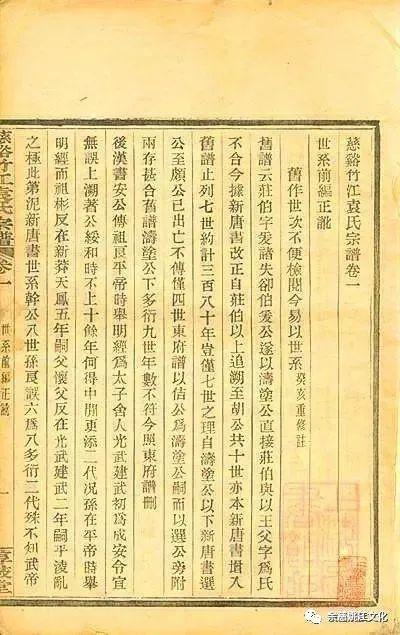 慈谿竹江袁氏宗譜卷一
世系前編正訛
舊作世次不便檢閱今易以世系癸亥重修註
舊譜云莊伯字爰諸失卻伯爰公遂以濤塗公直接莊伯與以王父字為氏
不合今據新唐書改正自莊伯以上追溯至胡公共十世亦本新唐書塡入
舊譜止列七世約計三百八十年豈僅七世之理自濤塗公以下新唐書選
公至頗公已出亡不傳僅四世東府譜以佶公為濤塗公嗣而以選公旁附
兩存甚合舊譜濤塗公下多衍九世年數不符今照東府譜刪
後漢書安公傳祖良平帝時舉明經為太子舍人光武建武初為成安令宜
無誤上溯著公綏和時不上十餘年何得中間更添二代况孫在平帝時舉
明經而祖彬反在新莽天鳳五年嗣父懷父反在光武建武二年嗣平淩亂
之極此第泥新唐書世系幹公八世孫良誤六為八多衍二代殊不知武帝
慈谿竹江袁氏宗譜
卷一
世系前編正訛
一
余慈姚鈺文化